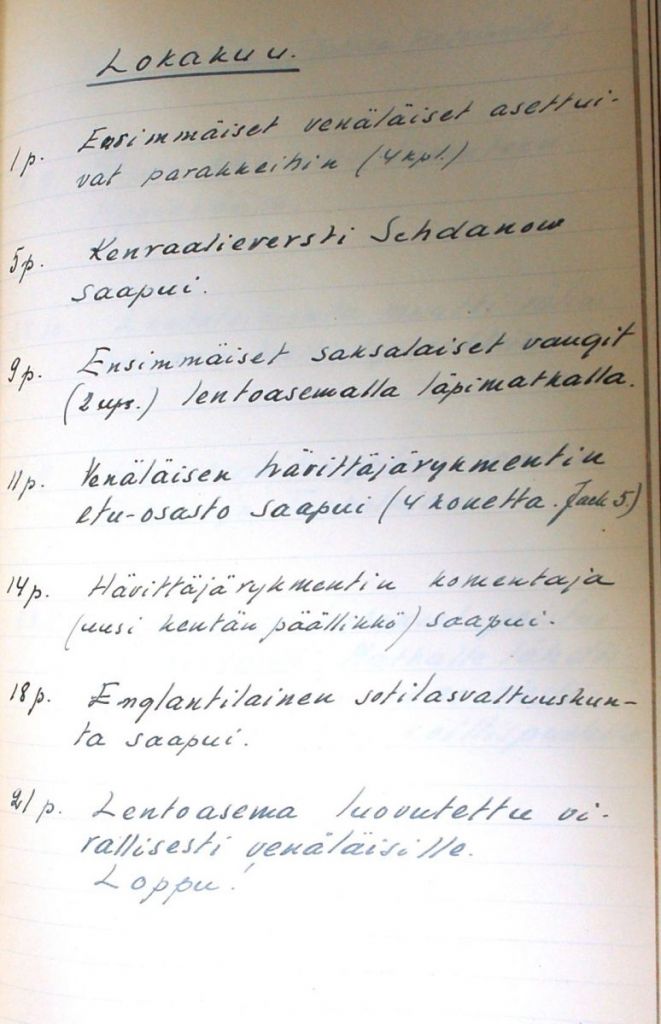 Lokakuu.
1 p. Ensimmäiset venäläiset asettui-
vat parakkeihin (4 kpl.)
5 p. Kenraalieversti Schdanow
saapui.
9 p. Ensimmäiset saksalaiset vangit
(2 ups.) lentoasemalla läpimatkalla.
11 p. Venäläisen hävittäjärykmentin
etu-osasto saapui (4 konetta. Jack 5.)
14 p. Hävittäjärykmentin komentaja
(uusi kentän päällikkö) saapui.
18 p. Englantilainen sotilasvaltuuskun-
ta saapui.
21 p. Lentoasema luovutettu vi-
rallisesti venäläisille.
Loppu!